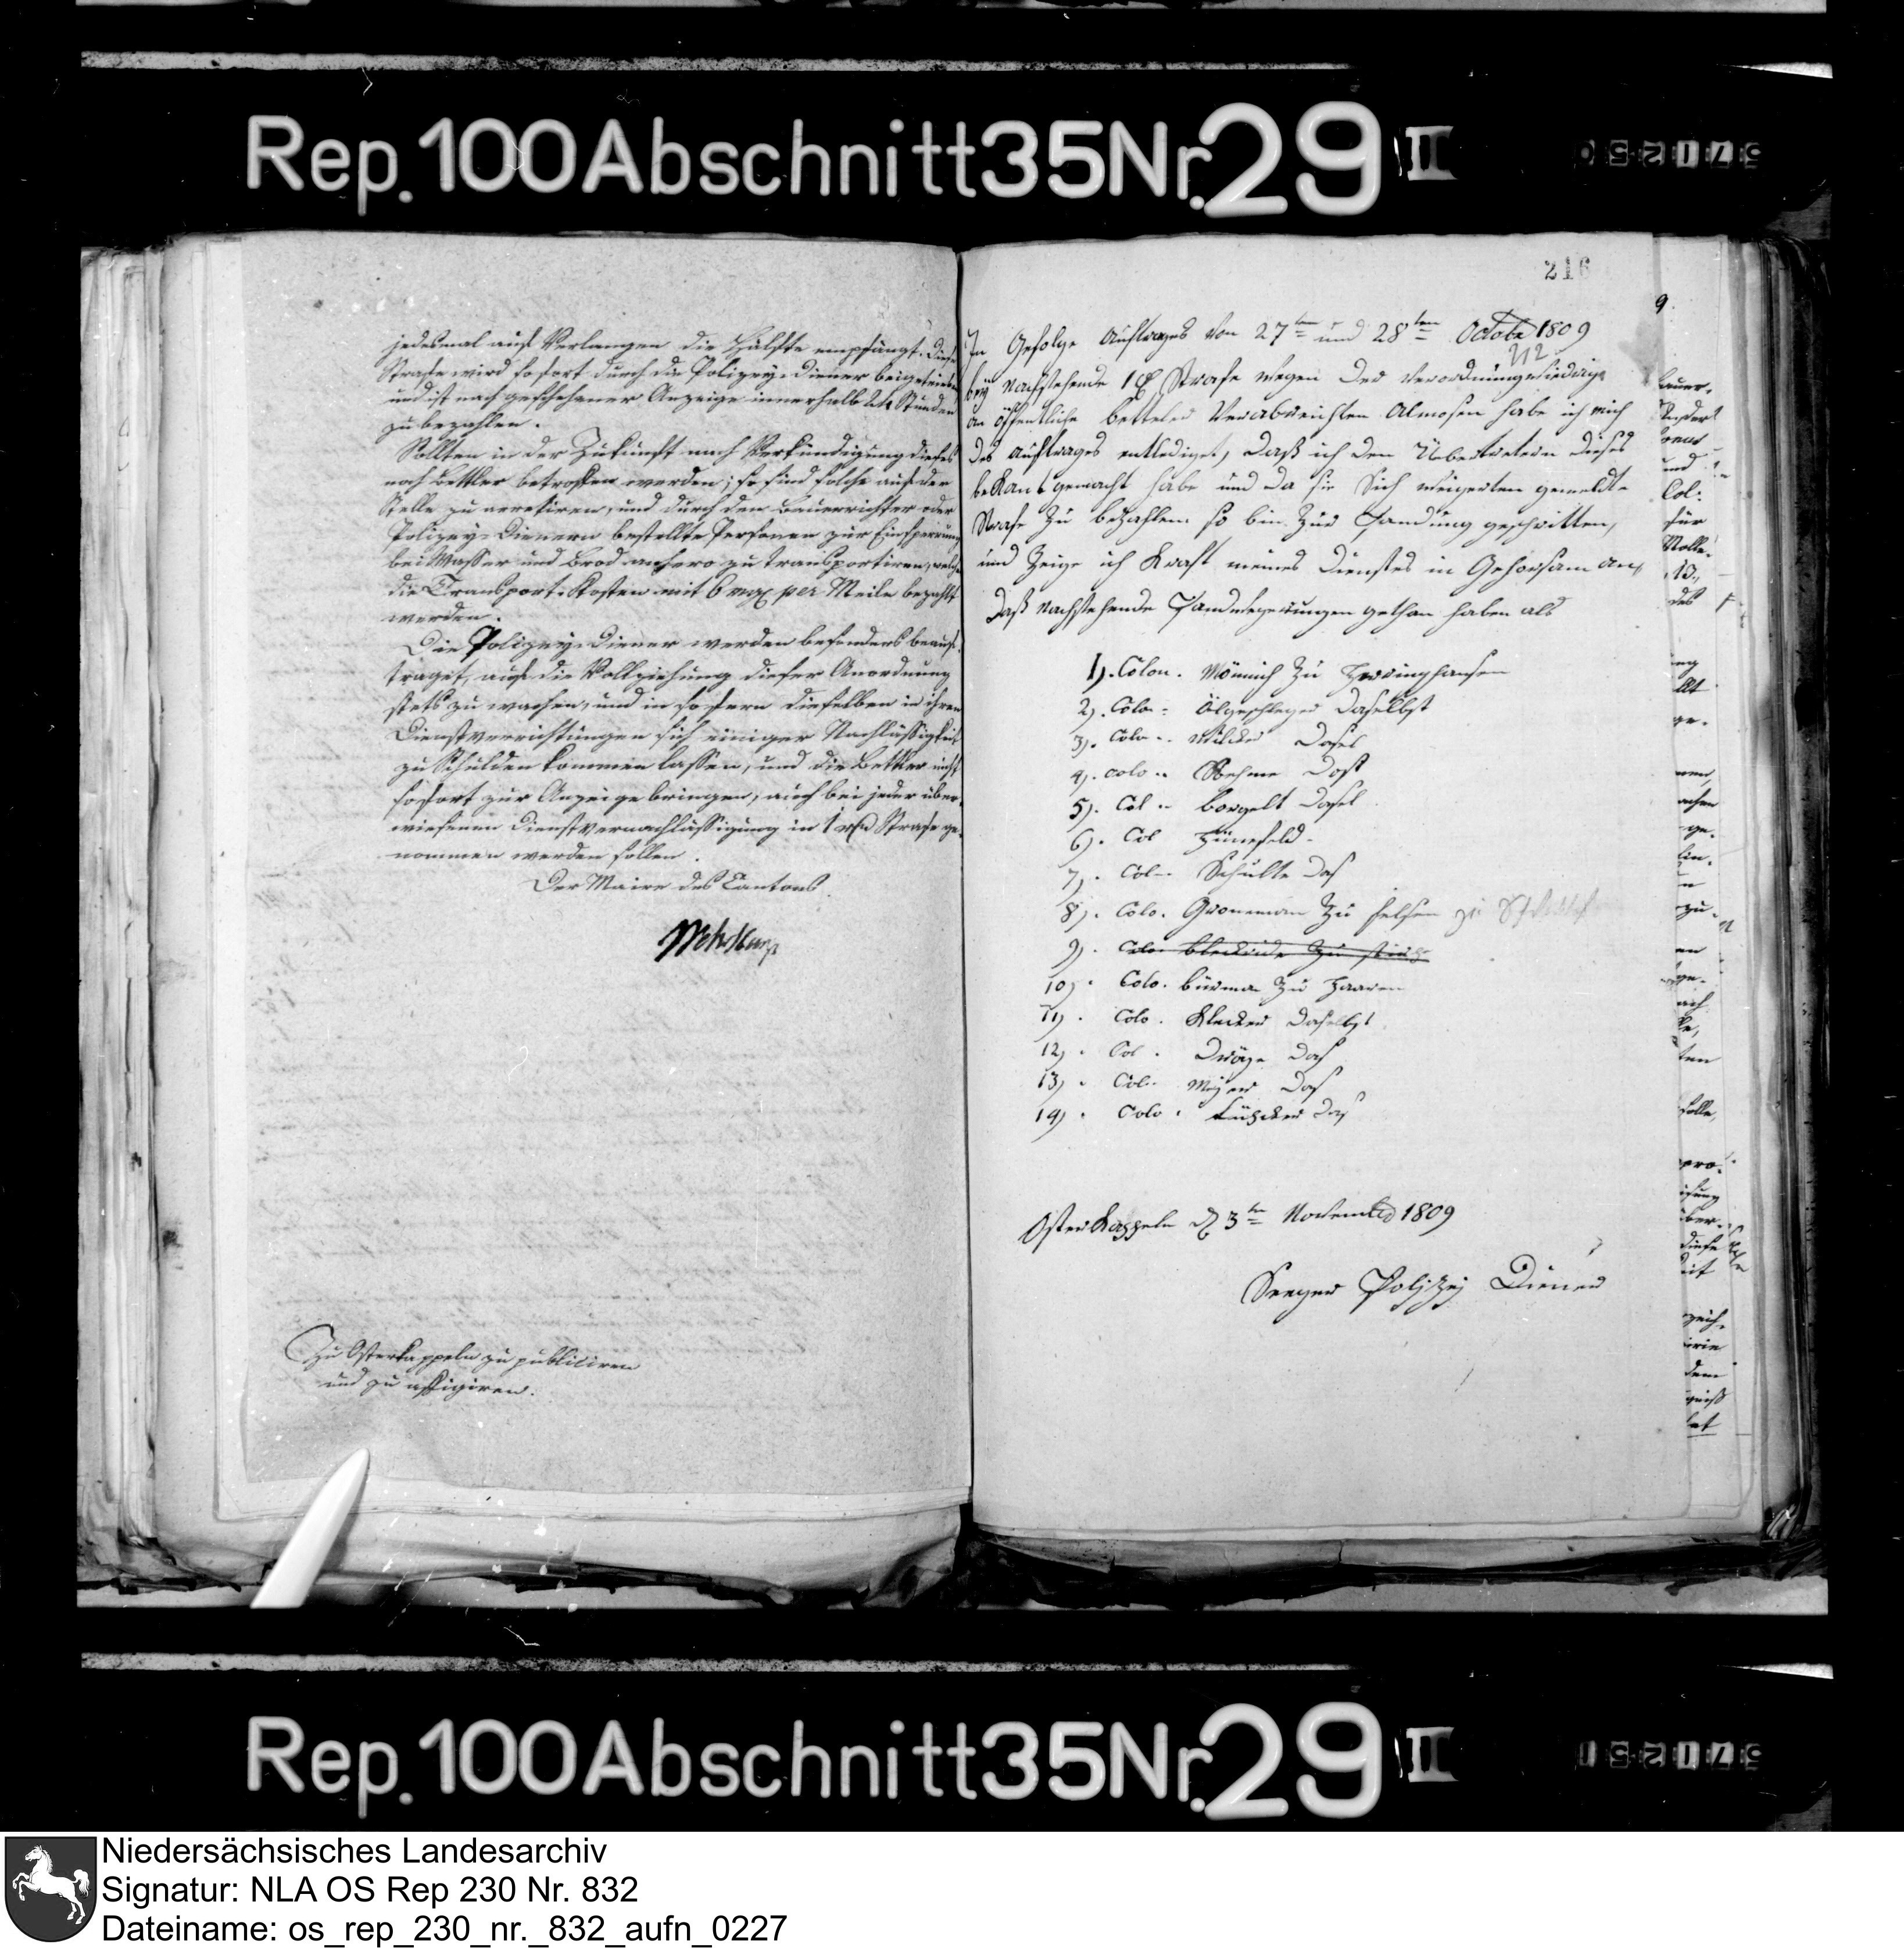 Rep. 100 Abschnitt 35 Nr. 29 II
jedesmal auf Verlangen die Hälfte empfängt. Diese
Strafe wird sofort durch die Polizey-Diener beigetrieben
und ist nach geschehener Anzeige innerhalb 24 Stunden
zu bezahlen.
Sollten in der Zukunft nach Verkündigung dieses
noch Bettler betroffen werden; so sind solche auf der
Stelle zu arretiren, und durch den Bauerrichter oder
Polizey-Dienern bestellte Personen zur Einsperrung
bei Wasser und Brod anhero zu transportiren, welche
die Transport-Kosten mit 6 mgr per Meile bezahlt
werden.
Die Polizey-Diener werden besonders beauf-
traget, auf die Vollziehung dieser Anordnung
stets zu wachen, und in sofern dieselben in ihren
Dienstverrichtungen sich einiger Nachlässigkeit
zu Schulden kommen lassen, und die Bettler nicht
sofort zur Anzeige bringen, auch bei jeder über-
wiesenen Dienstvernachlässigung in 1 Strafe ge-
nommen werden sollen.
Der Maire des Cantons.
Zu Osterkappeln zu publiciren
und zu affigiren.
216
9
In Gefolge Auftrages von 27ten und 28ten Octobr 1809
212
bey Nachstehende 1 Strafe wegen der Verordnung
an öffentliche Bettler Verabreichten Almosen habe ich mich
des Auftrages entlediget, daß ich den Übertretern dieses
bekant gemacht habe und da sie Sich weigerten gemeldte
Strafe zu bezahlen so bin zur Pfandung geschritten,
und Zeige ich Kraft meines Dienstes in Gehorsam an,
daß Nachstehende Pfandweigerungen gethan haben als
1). Colon. Mönnich zu
2). Colon Ölgeschleger Daselbst
3). Colon Wilcker Dasel
4). colon Boehme Dast
5). Col Borgelt Dasel
6). Col Hünefeld
7). Colon Schulte Das
8). Colo. Groneman Zu Felsen zu
9). Colon
10). Colo. Bürman Zu Haaren
11). Colo. Klecker Daselbst
12). Col. Dröge Das
13). Colon Meyer Das
14). Colo. Lübcker Das
Osterkappeln d 3ten November 1809
Seeger Polizey Diener
Rep. 100 Abschnitt 35 Nr. 29 II
Niedersächsisches Landesarchiv
Signatur: NLA OS Rep 230 Nr. 832
Dateiname: os_rep_230_nr._832_aufn_0227